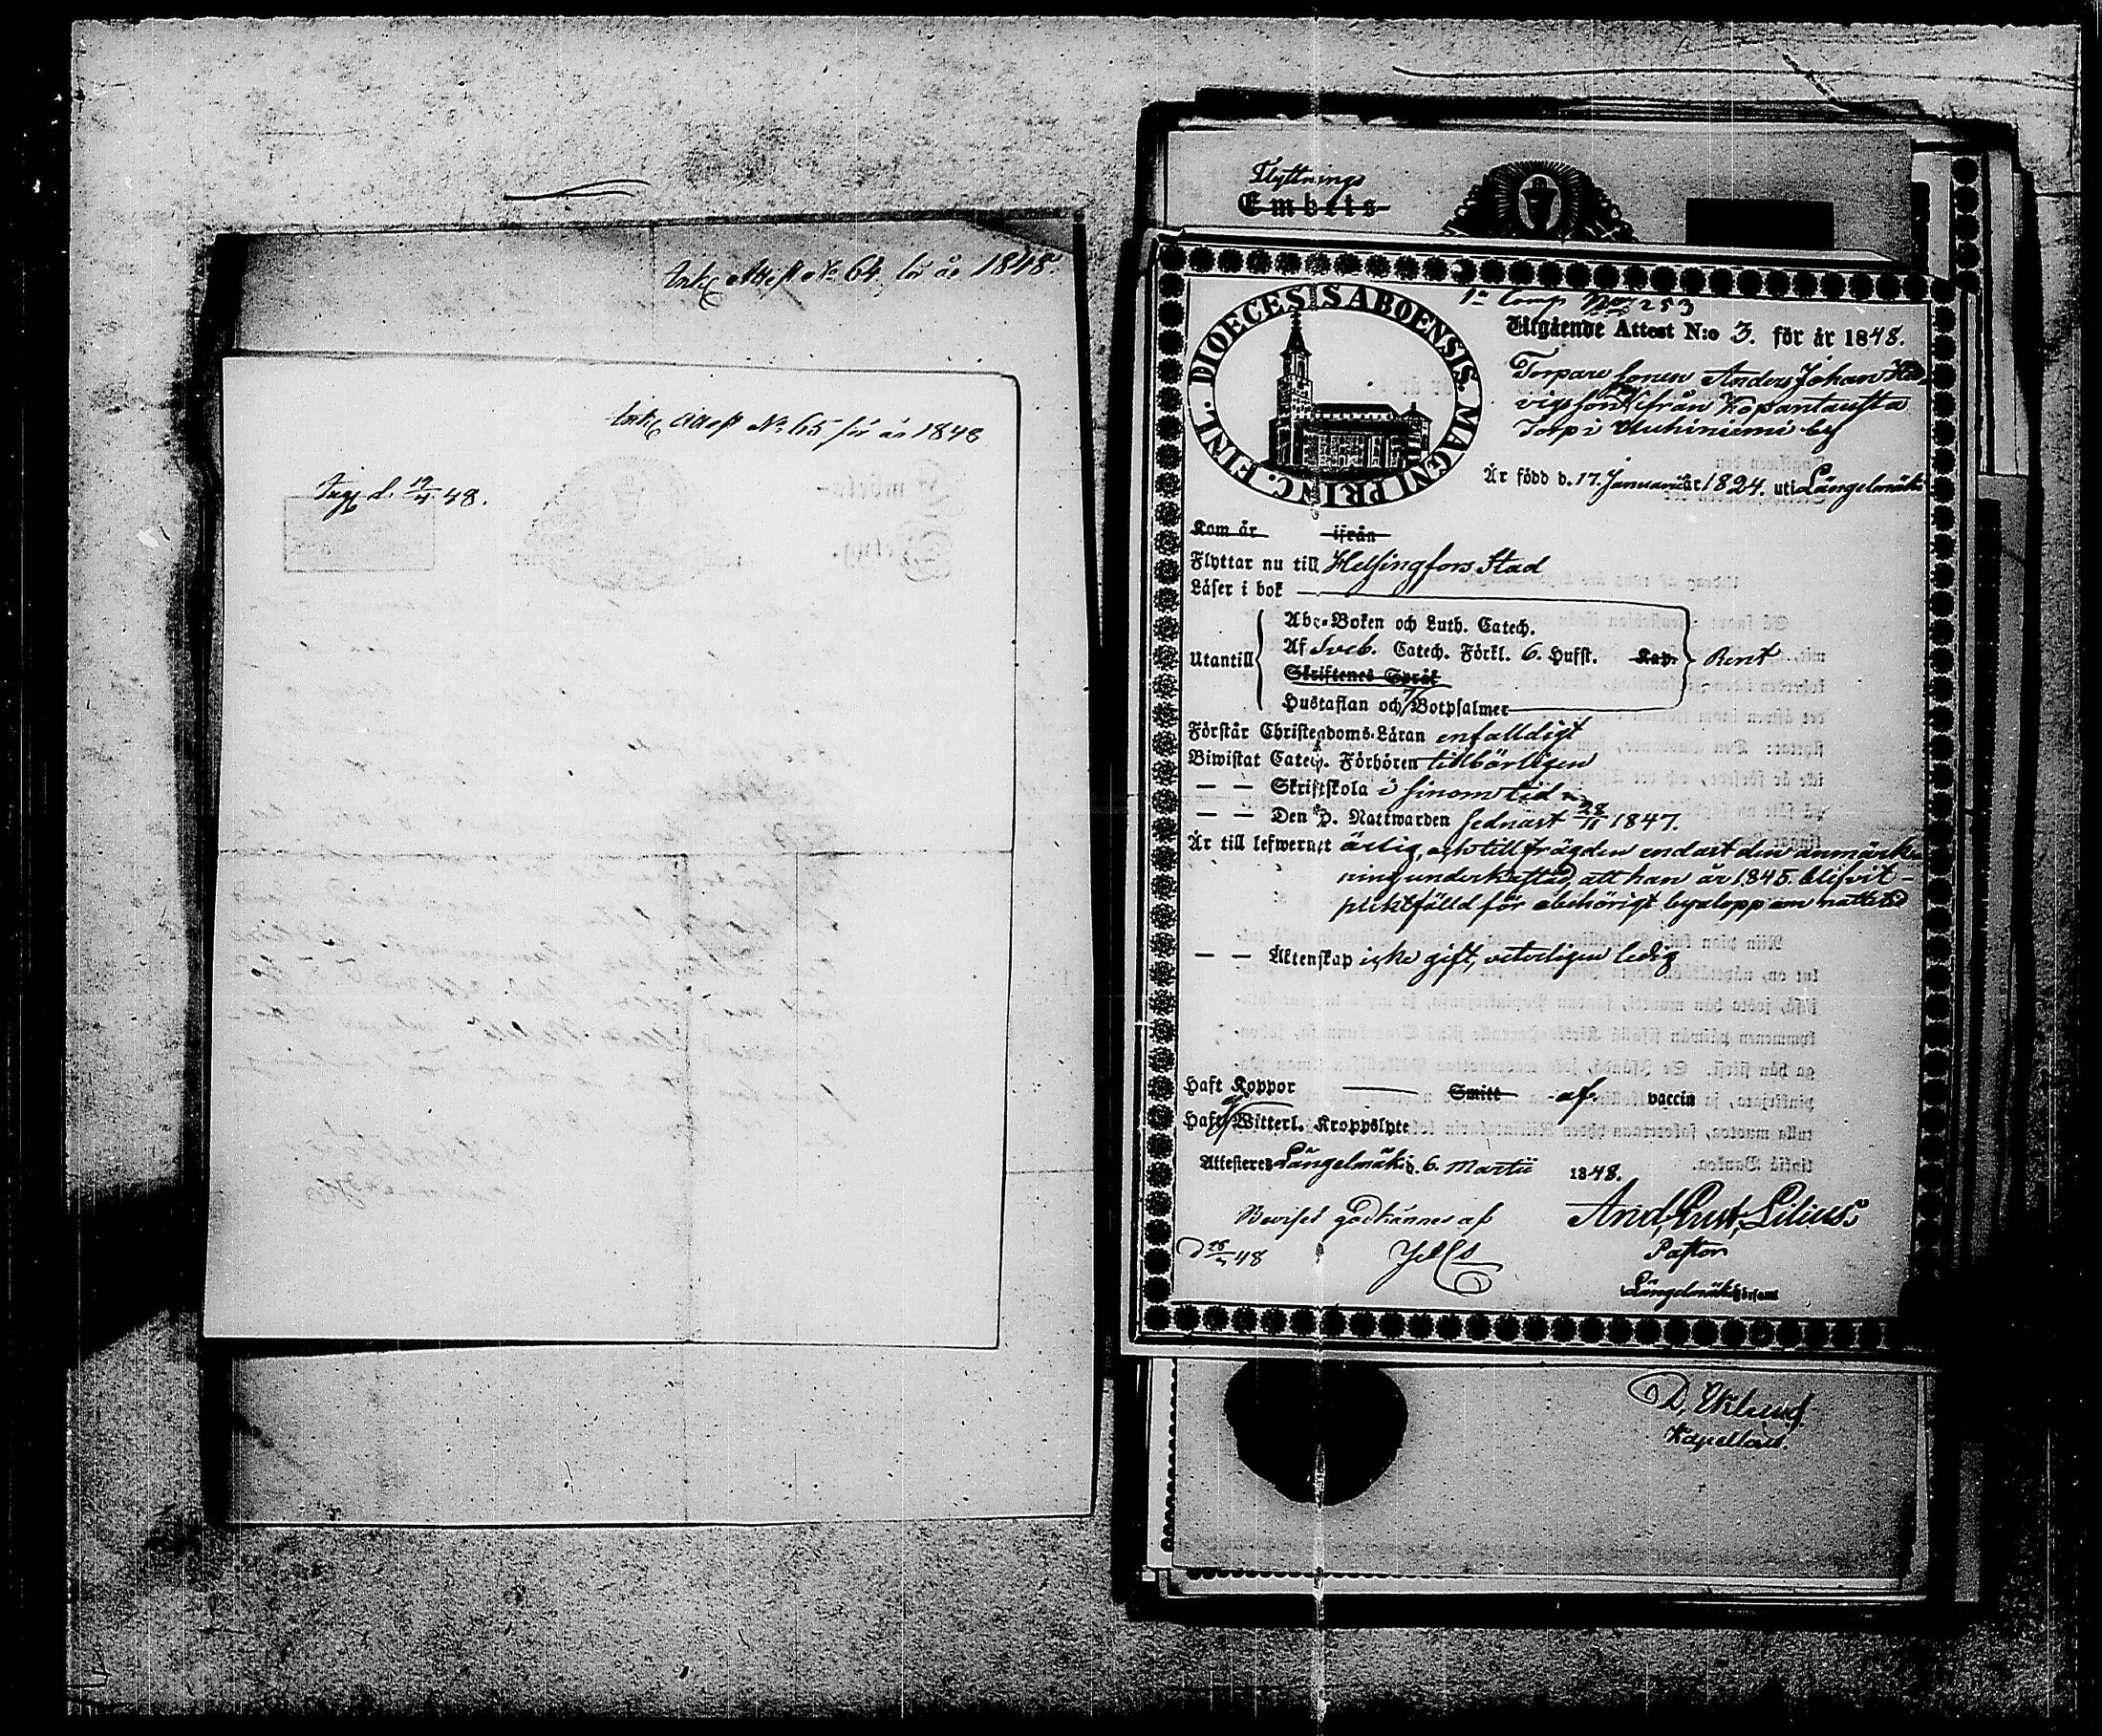 Ink. Attest No 64. för år 1848.
Ink. Attest No 65 för år 1848
Ing. d. 19/4 48.
Flyttnings
Embets-
DIOECESIS ABOENSIS. MAGNI PRINC. FINL.
1a Comp No 253
Utgående Attest N:o 3. för år 1848.
Torpare sonen Anders Johan Hed-
vigsson från Kopantausta
Torp i Uuhiniemi by
Är född d. 17 Januarii år 1824. uti Längelmäki
Kom år ifrån
Flyttar nu till Helsingfors Stad
Läser i bok
Utantill
Abc-Boken och Luth. Catech.
Af Sveb. Catech. Förkl. 6. Hufst. Kap. Rent
Skriftenes Språk
Hustaflan och 7 Botpsalmer
Förstår Christendoms-Läran enfalldigt
Biwistat Catech. Förhören tillbörligen
— — Skriftskola i sinom tid
— — Den H. Nattwarden sednast 28/11 1847.
Är till lefwernet ärlig, och till frägden endast den anmärk-
ning underkastad, att han år 1845. blifvit
pliktfälld för obehörigt byalopp om nattetid
— — Äktenskap icke gift, veterligen ledig
Haft Koppor — Smitt af vaccin
Haft Witterl. Kroppslyte
Attesteres Längelmäki d. 6. Martii 1848.
Arvid Gust. Lilius.
Pastor
Längelmäki församl
Beviset godkännes af
48
D. Eklund
Kapellan.